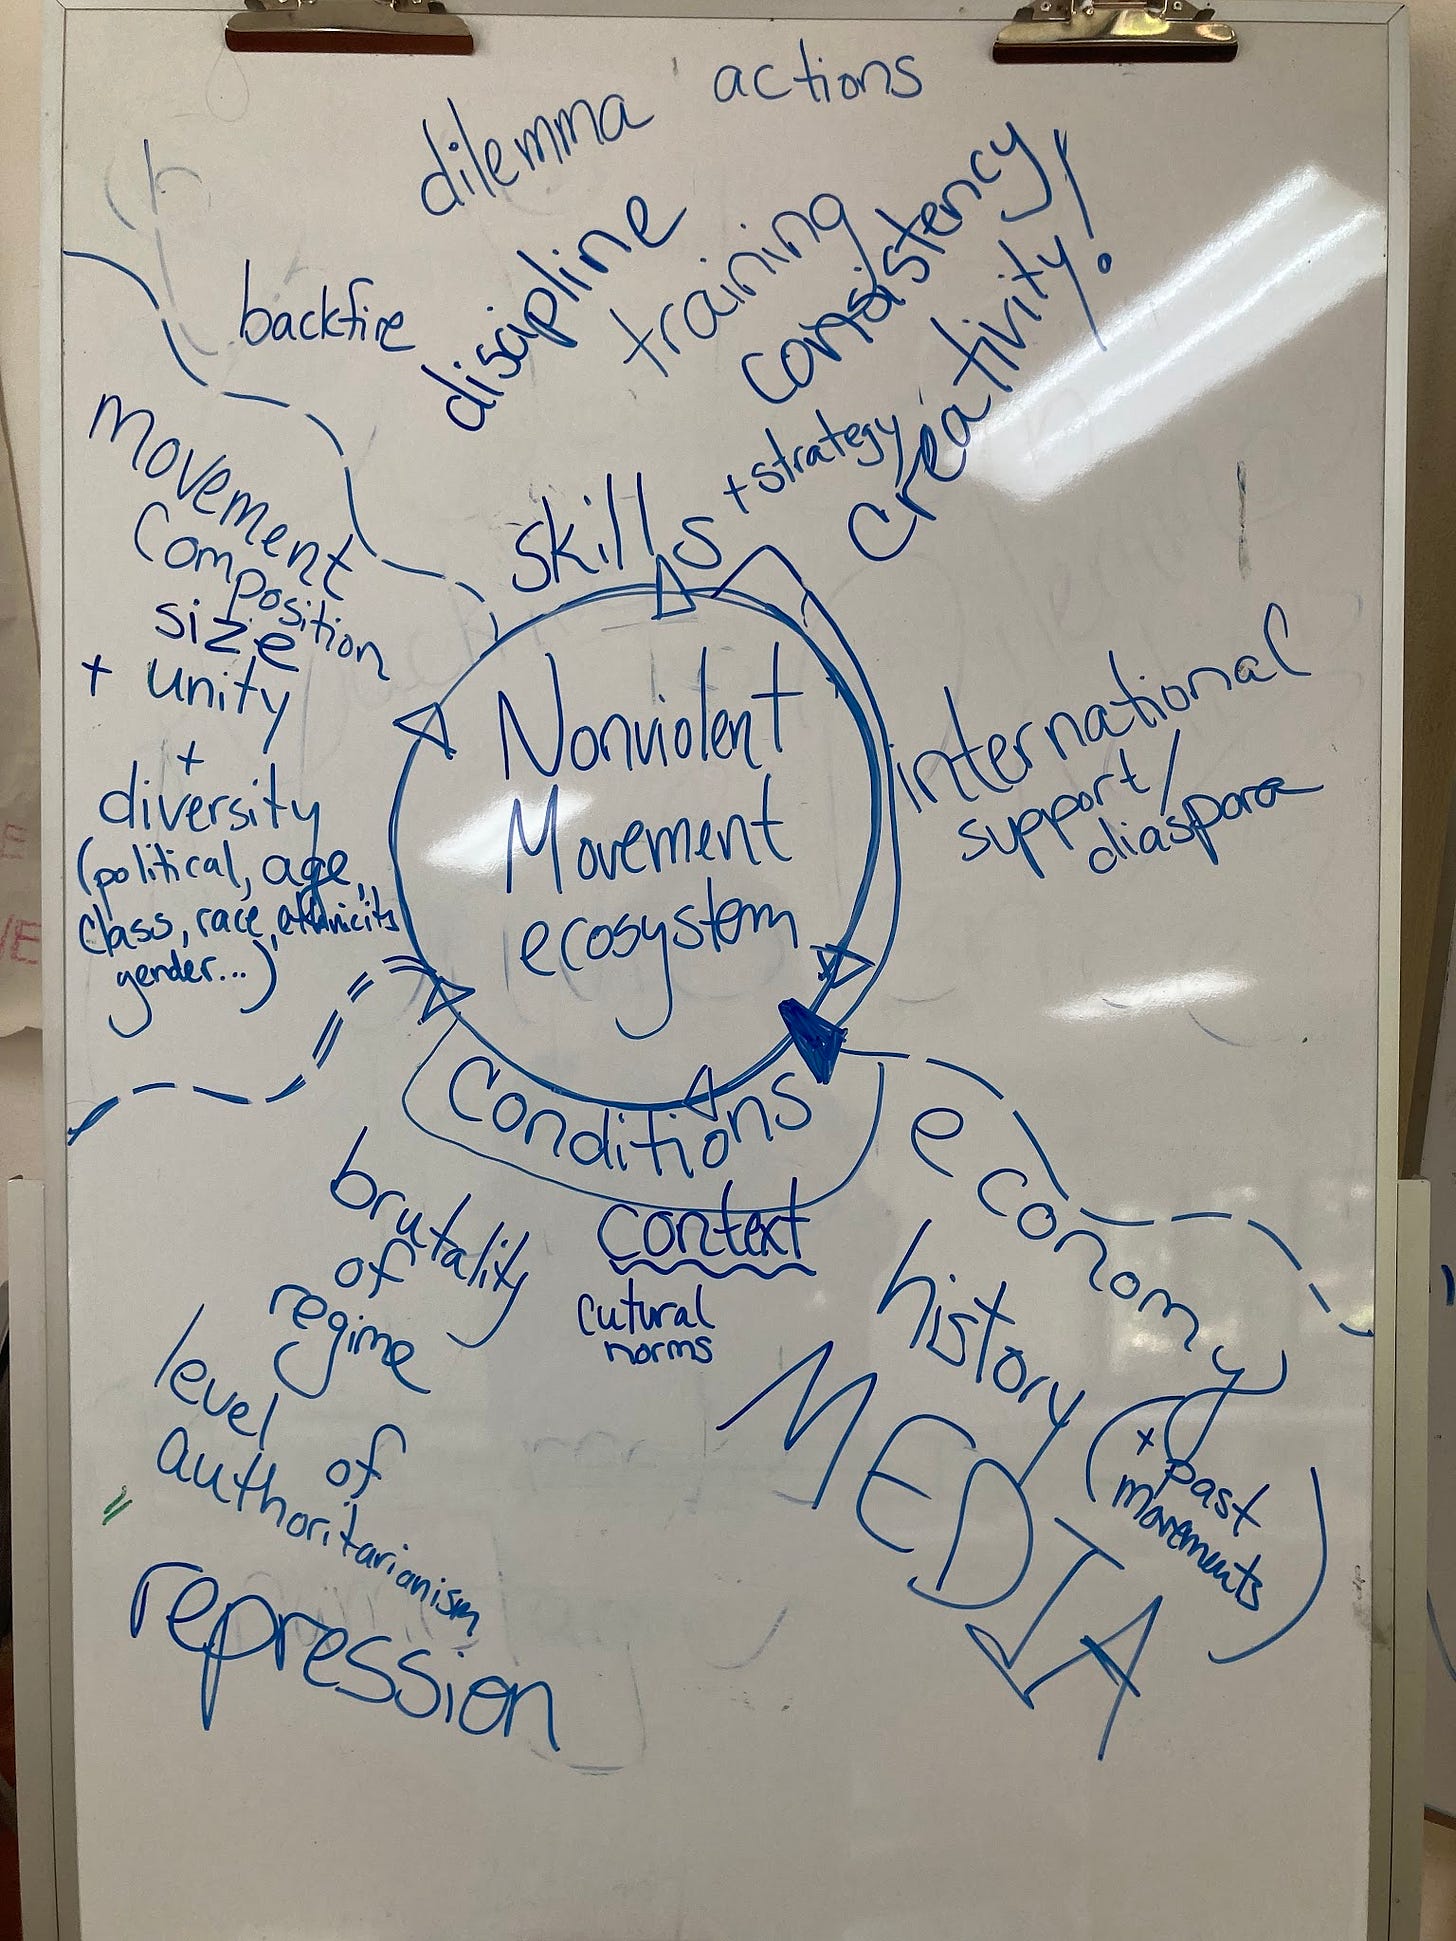 dilemma actions
backfire
discipline
training
consistency
creativity!
skills
+ strategy
movement
composition
size
+ unity
+
diversity
(political, age,
class, race, ethnicity
gender...)
Nonviolent
Movement
ecosystem
international
support/
diaspora
conditions
context
cutural
norms
brutality
of
regime
level of
authoritarianism
repression
economy
history
(+ past
movements)
MEDIA